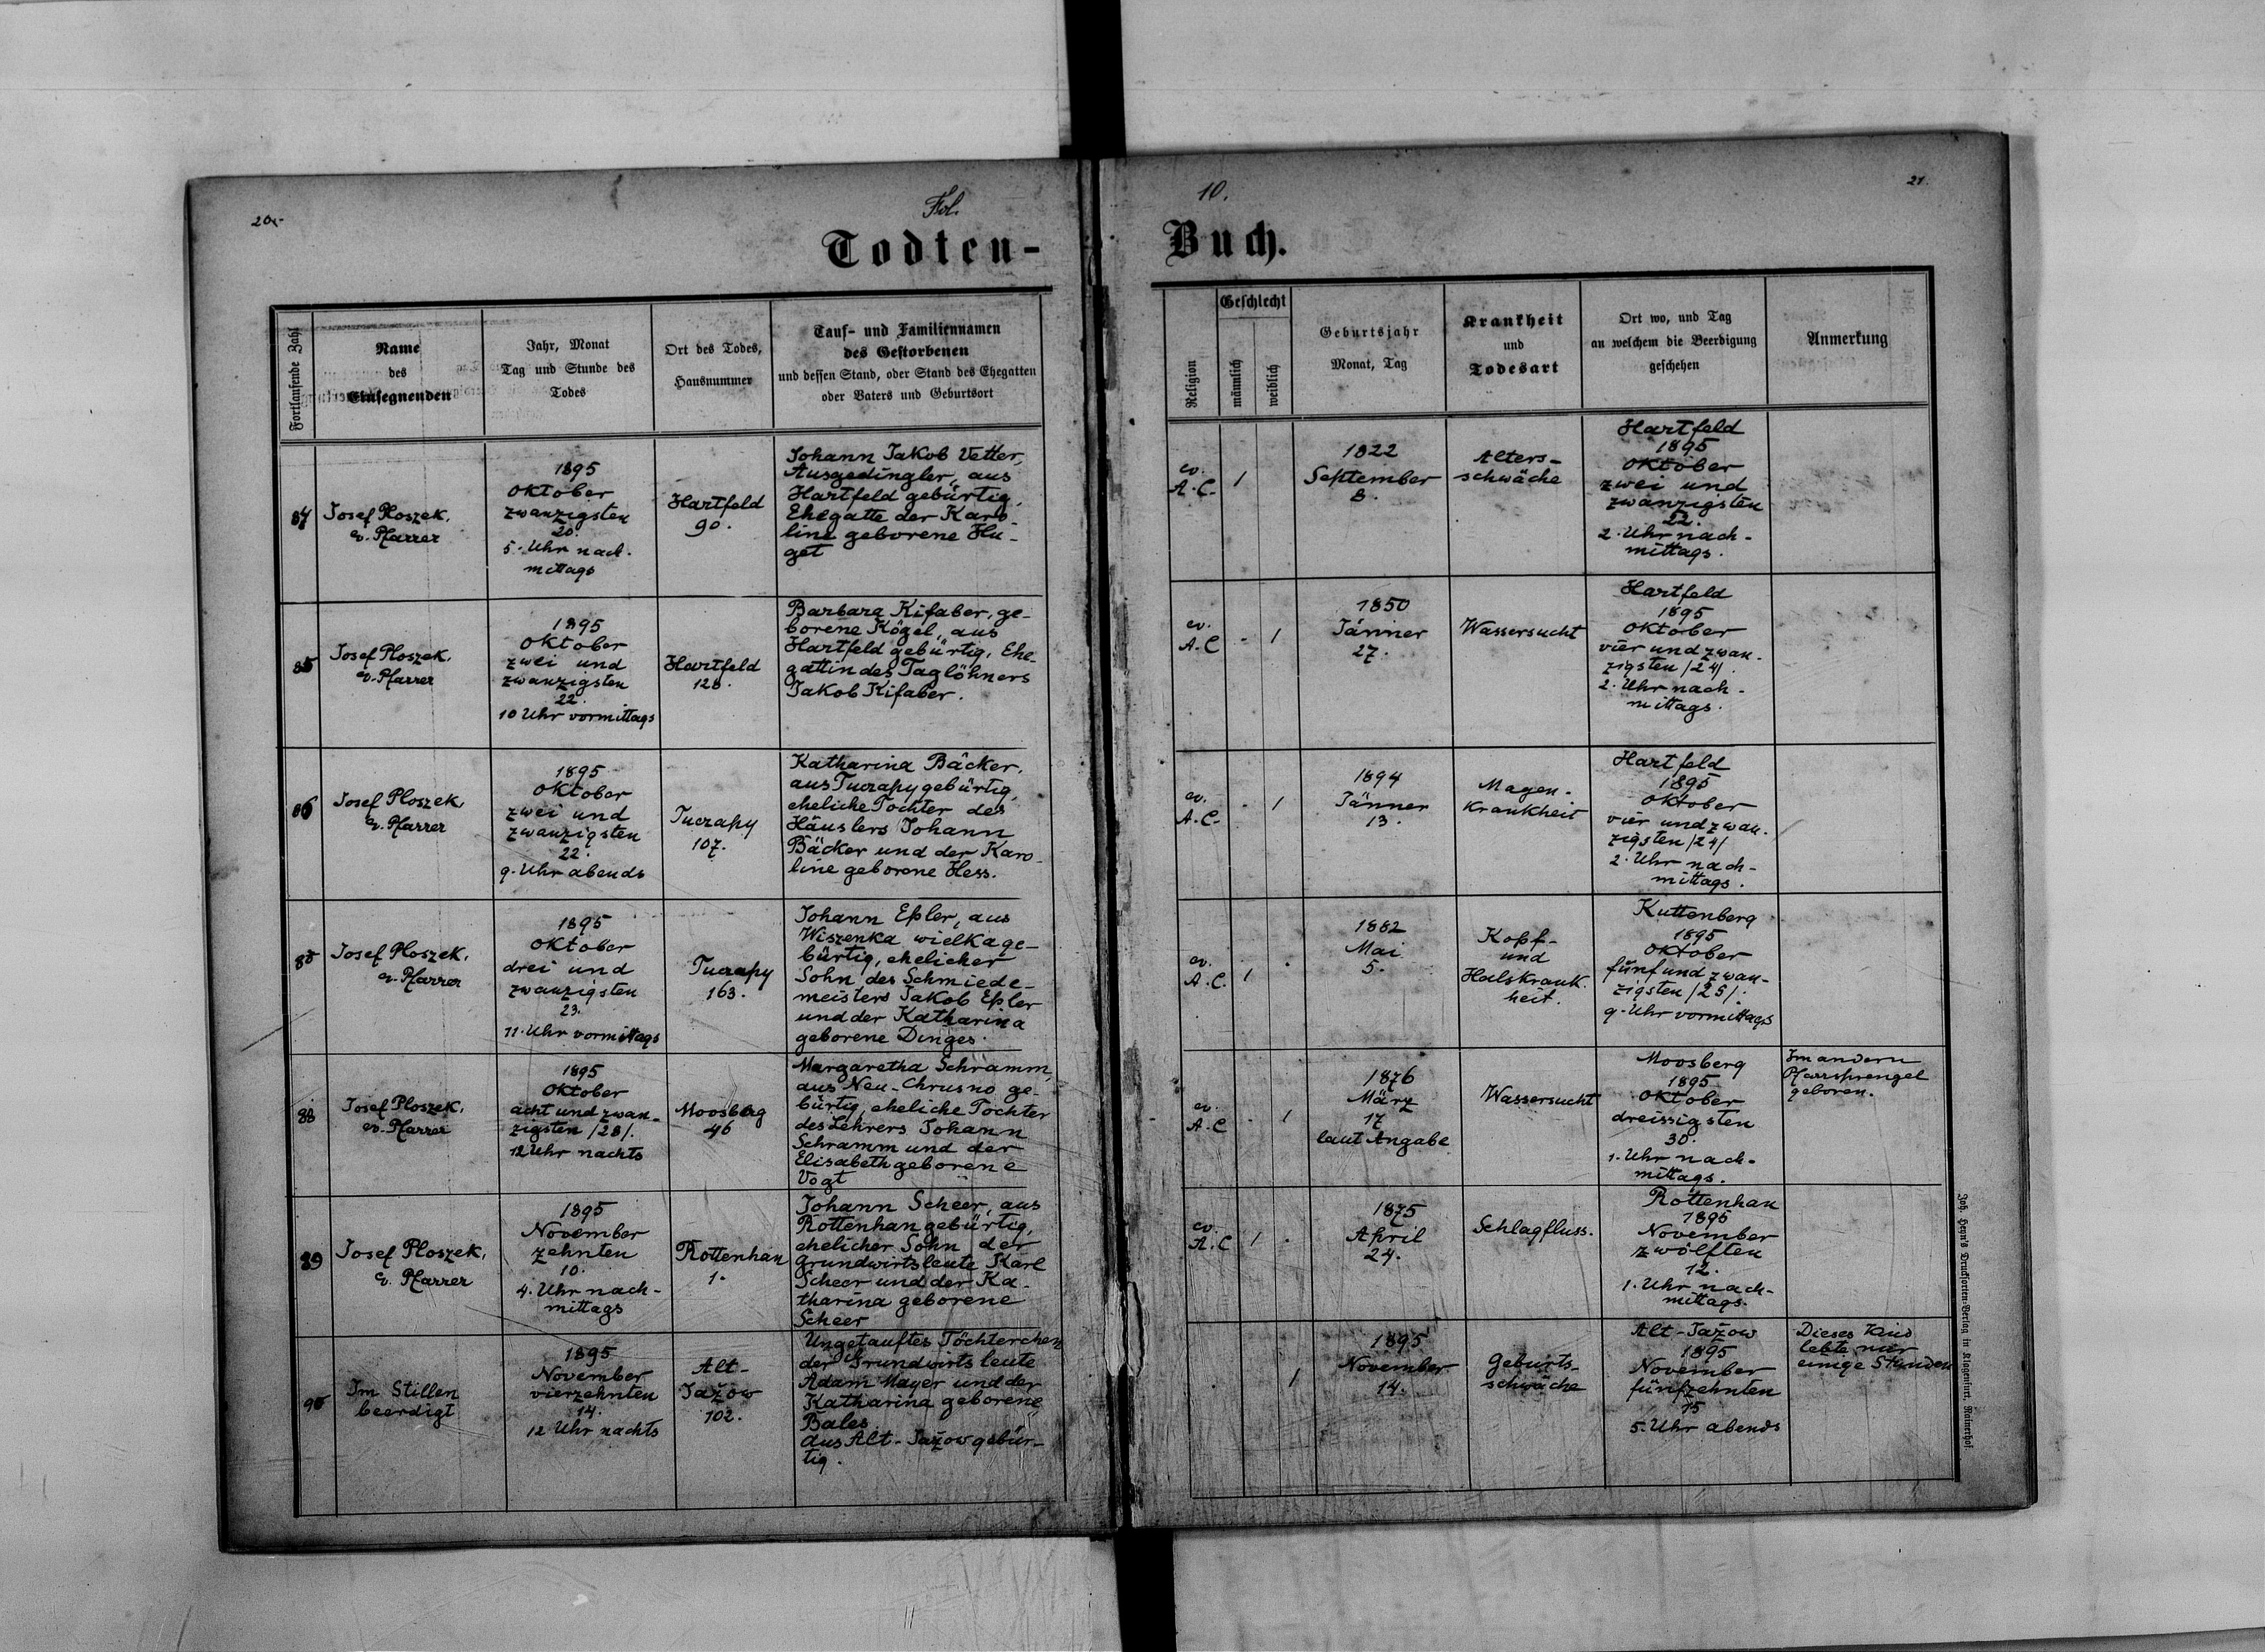 20.
Fol.
10.
21.
Todten-
Buch.
Fortlaufende Zahl
Name
des
Einsegnenden
Jahr, Monat
Tag und Stunde des
Todes
Ort des Todes,
Hausnummer
Tauf- und Familiennamen
des Gestorbenen
und dessen Stand, oder Stand des Ehegatten
oder Vaters und Geburtsort
Religion
Geschlecht
männlich
weiblich
Geburtsjahr
Monat, Tag
Krankheit
und
Todesart
Ort wo, und Tag
an welchem die Beerdigung
geschehen
Anmerkung
84
Josef Ploszek,
ev. Pfarrer
1895
Oktober
zwanzigsten
20.
5. Uhr nach-
mittags
Hartfeld
90.
Johann Jakob Vetter,
Ausgedingler, aus
Hartfeld gebürtig,
Ehegatte der Karo-
line geborene Hu-
get
ev.
A.C.
1
1822
September
8.
Alters-
schwäche
Hartfeld
1895
Oktober
zwei und
zwanzigsten
22.
2. Uhr nach-
mittags.
85
Josef Ploszek,
ev. Pfarrer
1895
Oktober
zwei und
zwanzigsten
22.
10 Uhr vormittags
Hartfeld
128.
Barbara Kifaber, ge-
borene Kögel, aus
Hartfeld gebürtig, Ehe-
gattin des Taglöhners
Jakob Kifaber.
ev.
A.C
- 1
1850
Jänner
27.
Wassersucht
Hartfeld
1895
Oktober
vier und zwan-
zigsten /24/.
2. Uhr nach-
mittags.
86
Josef Ploszek,
ev. Pfarrer
1895
Oktober
zwei und
zwanzigsten
22.
9. Uhr abends
Tuczapy
107.
Katharina Bäcker,
aus Tuczapy gebürtig,
eheliche Tochter des
Häuslers Johann
Bäcker und der Karo-
line geborene Hess.
ev.
A.C.
- 1
1894
Jänner
13.
Magen-
krankheit
Hartfeld
1895
Oktober
vier und zwan-
zigsten /24/
2. Uhr nach-
mittags.
Josef Ploszek,
ev. Pfarrer
1895
Oktober
drei und
zwanzigsten
23.
11. Uhr vormittags
Tuczapy
163.
Johann Eßler, aus
Wiszenka wielka ge-
bürtig, ehelicher
Sohn des Schmiede-
meisters Jakob Eßler
und der Katharina
geborene Dinges.
ev.
A.C.
1 .
1882
Mai
5.
Kopf-
und
Halskrank-
heit.
Kuttenberg
1895
Oktober
fünf und zwan-
zigsten /25/.
9. Uhr vormittags
88
Josef Ploszek,
ev. Pfarrer
1895
Oktober
acht und zwan-
zigsten /28/.
12 Uhr nachts
Moosberg
46
Margaretha Schramm,
aus Neu-Chrusno ge-
bürtig, eheliche Tochter
des Lehrers Johann
Schramm und der
Elisabeth geborene
Vogt
ev.
A.C
- 1
1876
März
17
laut Angabe
Wassersucht
Moosberg
1895
Oktober
dreissigsten
30.
1. Uhr nach-
mittags.
Im andern
Pfarrsprengel
geboren.
89
Josef Ploszek,
ev. Pfarrer
1895
November
zehnten
10.
4. Uhr nach-
mittags
Rottenhan
1.
Johann Scheer, aus
Rottenhan gebürtig,
ehelicher Sohn der
Grundwirtsleute Karl
Scheer und der Ka-
tharina geborene
Scheer
ev.
A.C
1 .
1875
April
24.
Schlagfluss.
Rottenhan
1895
November
zwölften
12.
1. Uhr nach-
mittags.
90
Im Stillen
beerdigt
1895
November
vierzehnten
14.
12 Uhr nachts
Alt-
Jažow
102.
Ungetauftes Töchterchen
der Grundwirtsleute
Adam Mayer und der
Katharina geborene
Bales
aus Alt-Jažow gebür-
tig.
. 1
1895
November
14.
Geburts-
schwäche
Alt-Jažow
1895
November
fünfzehnten
15
5. Uhr abends
Dieses Kind
lebte nur
einige Stunden
Joh. Heyn's Drucksorten-Verlag in Klagenfurt, Rainerhof